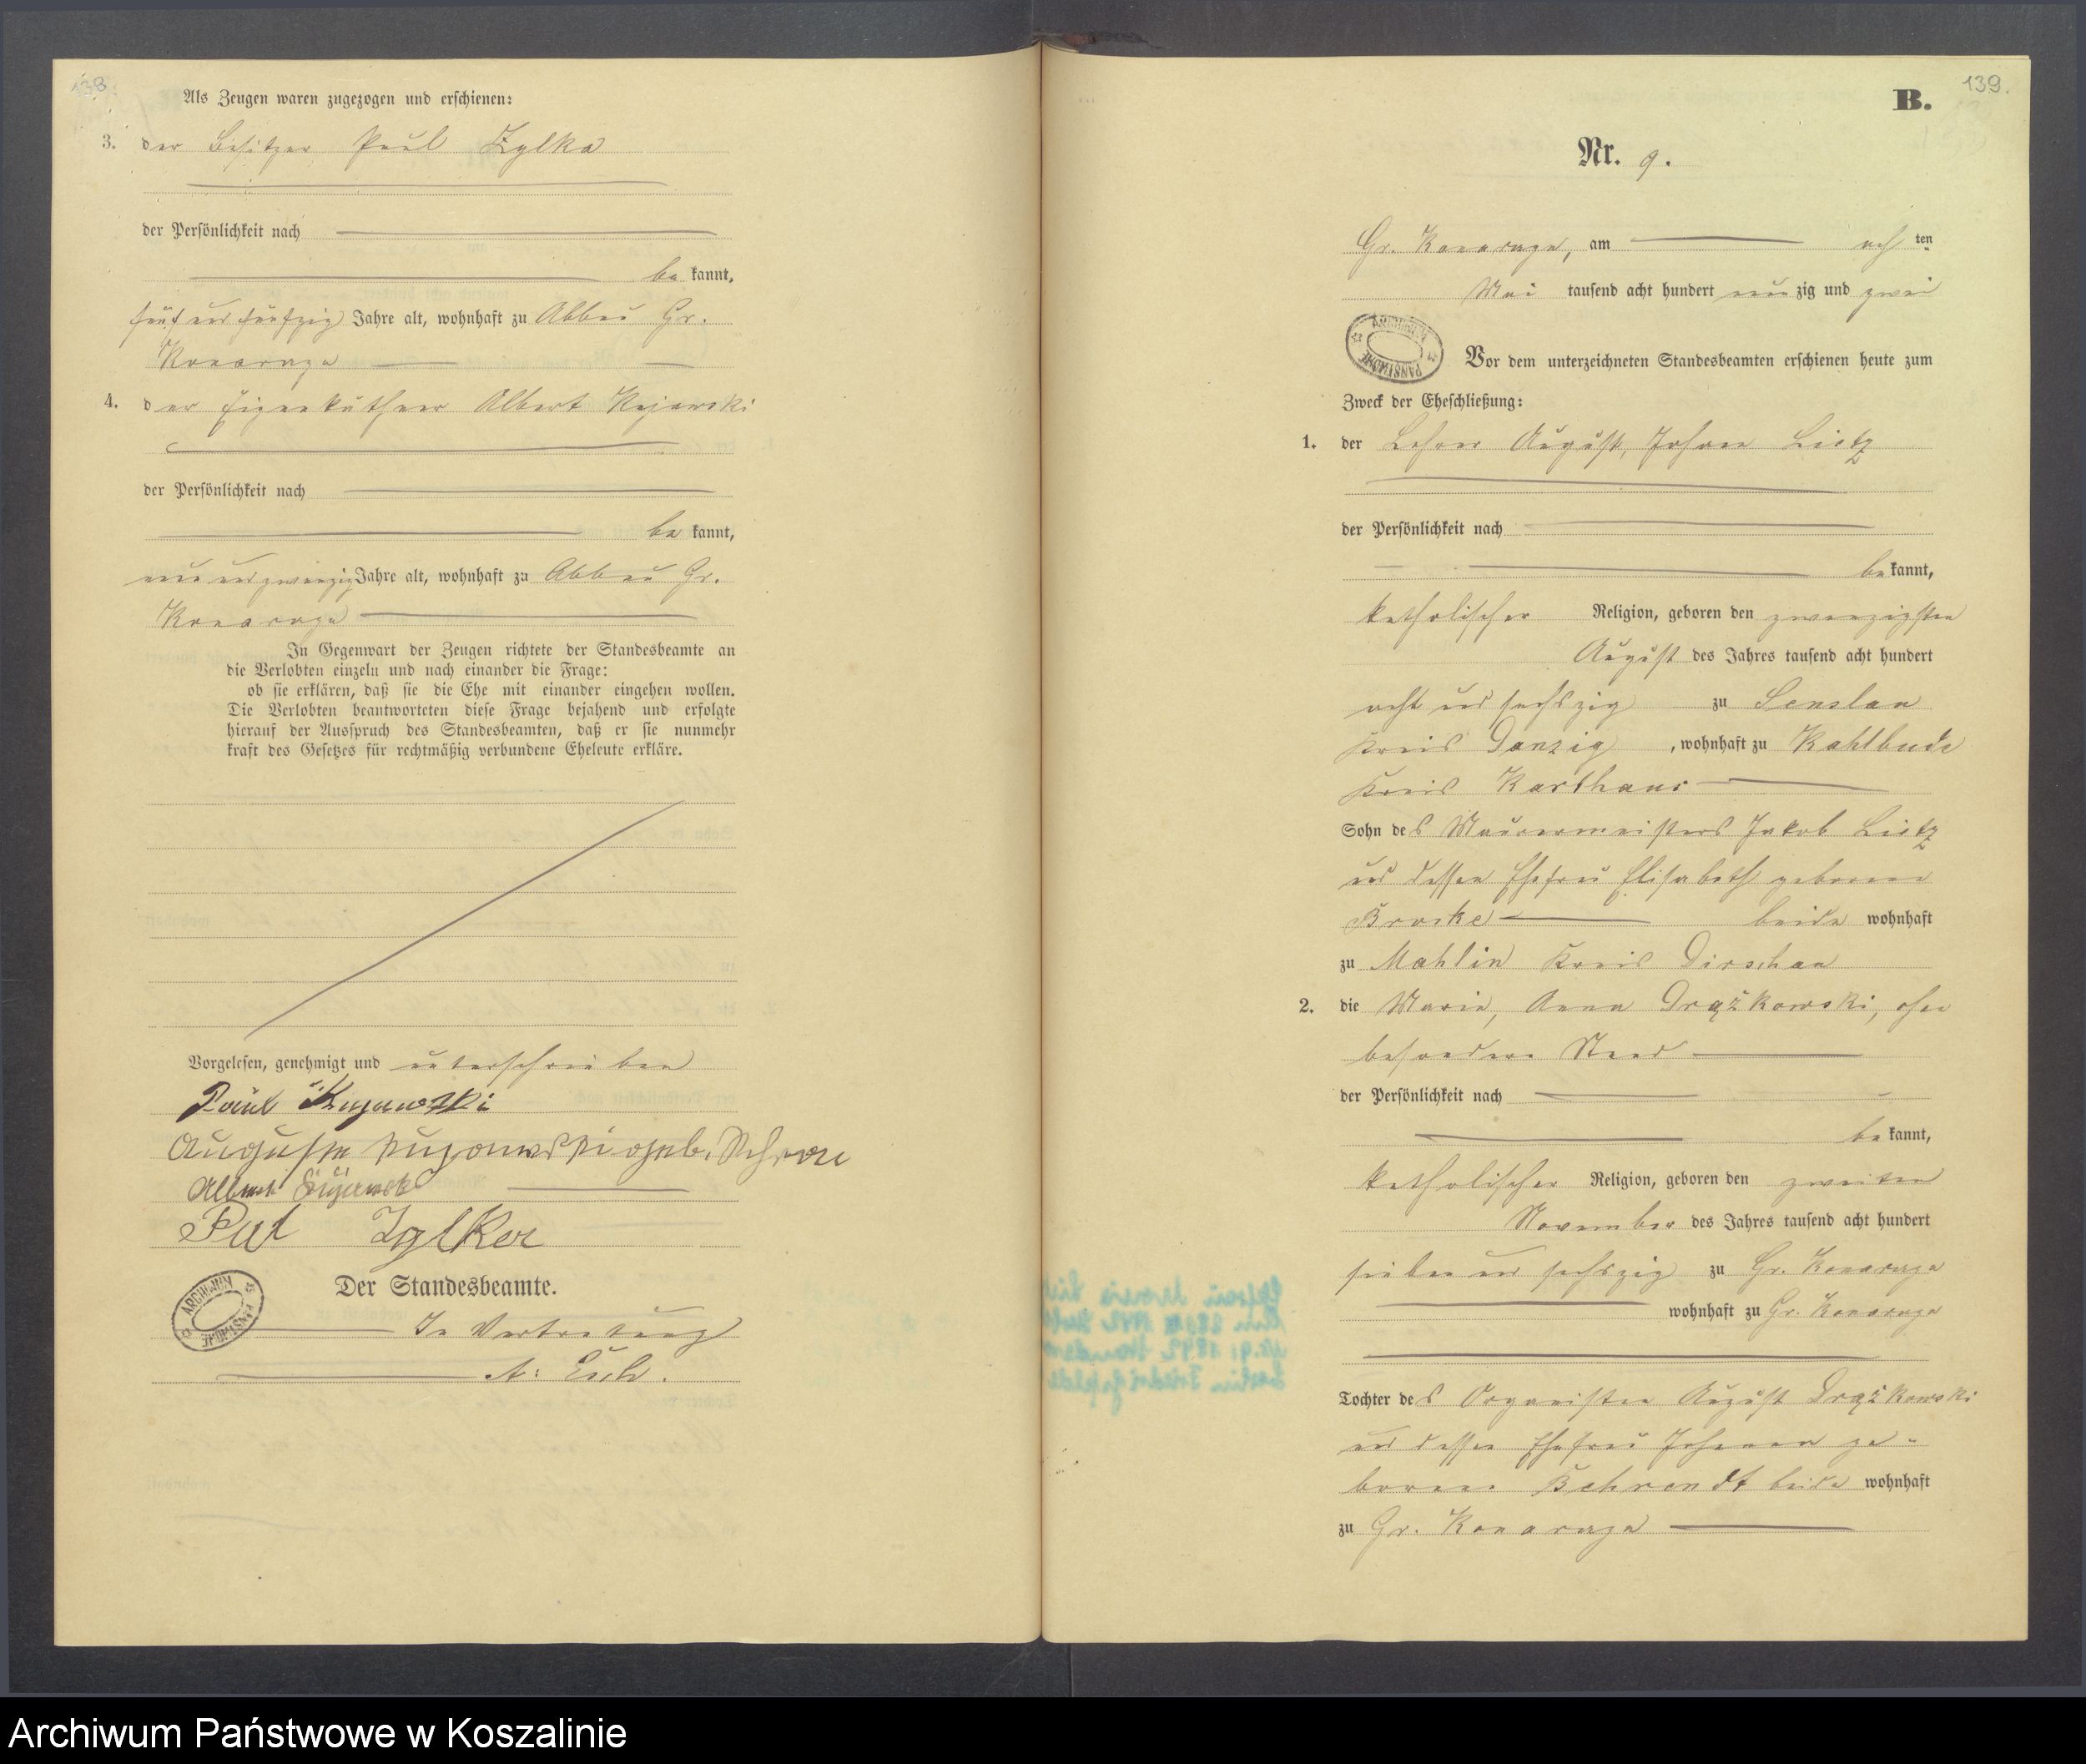 138.
Als Zeugen waren zugezogen und erschienen:
3. der Besitzer Paul Zylka
der Persönlichkeit nach
be kannt,
fünf und fünfzig Jahre alt, wohnhaft zu Abbau Gr.
Konarzyn
4. der Eigenkäthner Albert Kujawski
der Persönlichkeit nach
be kannt,
neun und zwanzig Jahre alt, wohnhaft zu Abbau Gr.
Konarzyn
In Gegenwart der Zeugen richtete der Standesbeamte an
die Verlobten einzeln und nach einander die Frage:
ob sie erklären, daß sie die Ehe mit einander eingehen wollen.
Die Verlobten beantworteten diese Frage bejahend und erfolgte
hierauf der Ausspruch des Standesbeamten, daß er sie nunmehr
kraft des Gesetzes für rechtmäßig verbundene Eheleute erkläre.
Vorgelesen, genehmigt und unterschrieben
Paul Kujawski
Auguste Kujawski geb.
Albert Kujawski
Paul Zylka
Der Standesbeamte.
ARCHIWUM PAŃSTWOWE
In Vertretung
139.
B.
Nr. 9.
Gr. Konarzyn, am ach ten
Mai tausend acht hundert neun zig und zwei
ARCHIWUM PAŃSTWOWE
Vor dem unterzeichneten Standesbeamten erschienen heute zum
Zweck der Eheschließung:
1. der Lehrer August, Johann Lietz
der Persönlichkeit nach
be kannt,
katholischer Religion, geboren den zwanzigsten
August des Jahres tausend acht hundert
acht und sechszig zu Senslau
Kreis Danzig, wohnhaft zu Kahlbude
Kreis Karthaus
Sohn des Maurermeisters Jakob Lietz
und dessen Ehefrau Elisabeth geborene
beide wohnhaft
zu Mahlin Kreis Dirschau
2. die Maria, Anna Drążkowski, ohne
besondern Stand
der Persönlichkeit nach
be kannt,
katholischer Religion, geboren den zweiten
November des Jahres tausend acht hundert
sieben und sechszig zu Gr. Konarzyn
wohnhaft zu Gr. Konarzyn
Tochter des Organisten August Drążkowski
und dessen Ehefrau Johanna ge-
borene Behrendt beide wohnhaft
zu Gr. Konarzyn
Archiwum Państwowe w Koszalinie